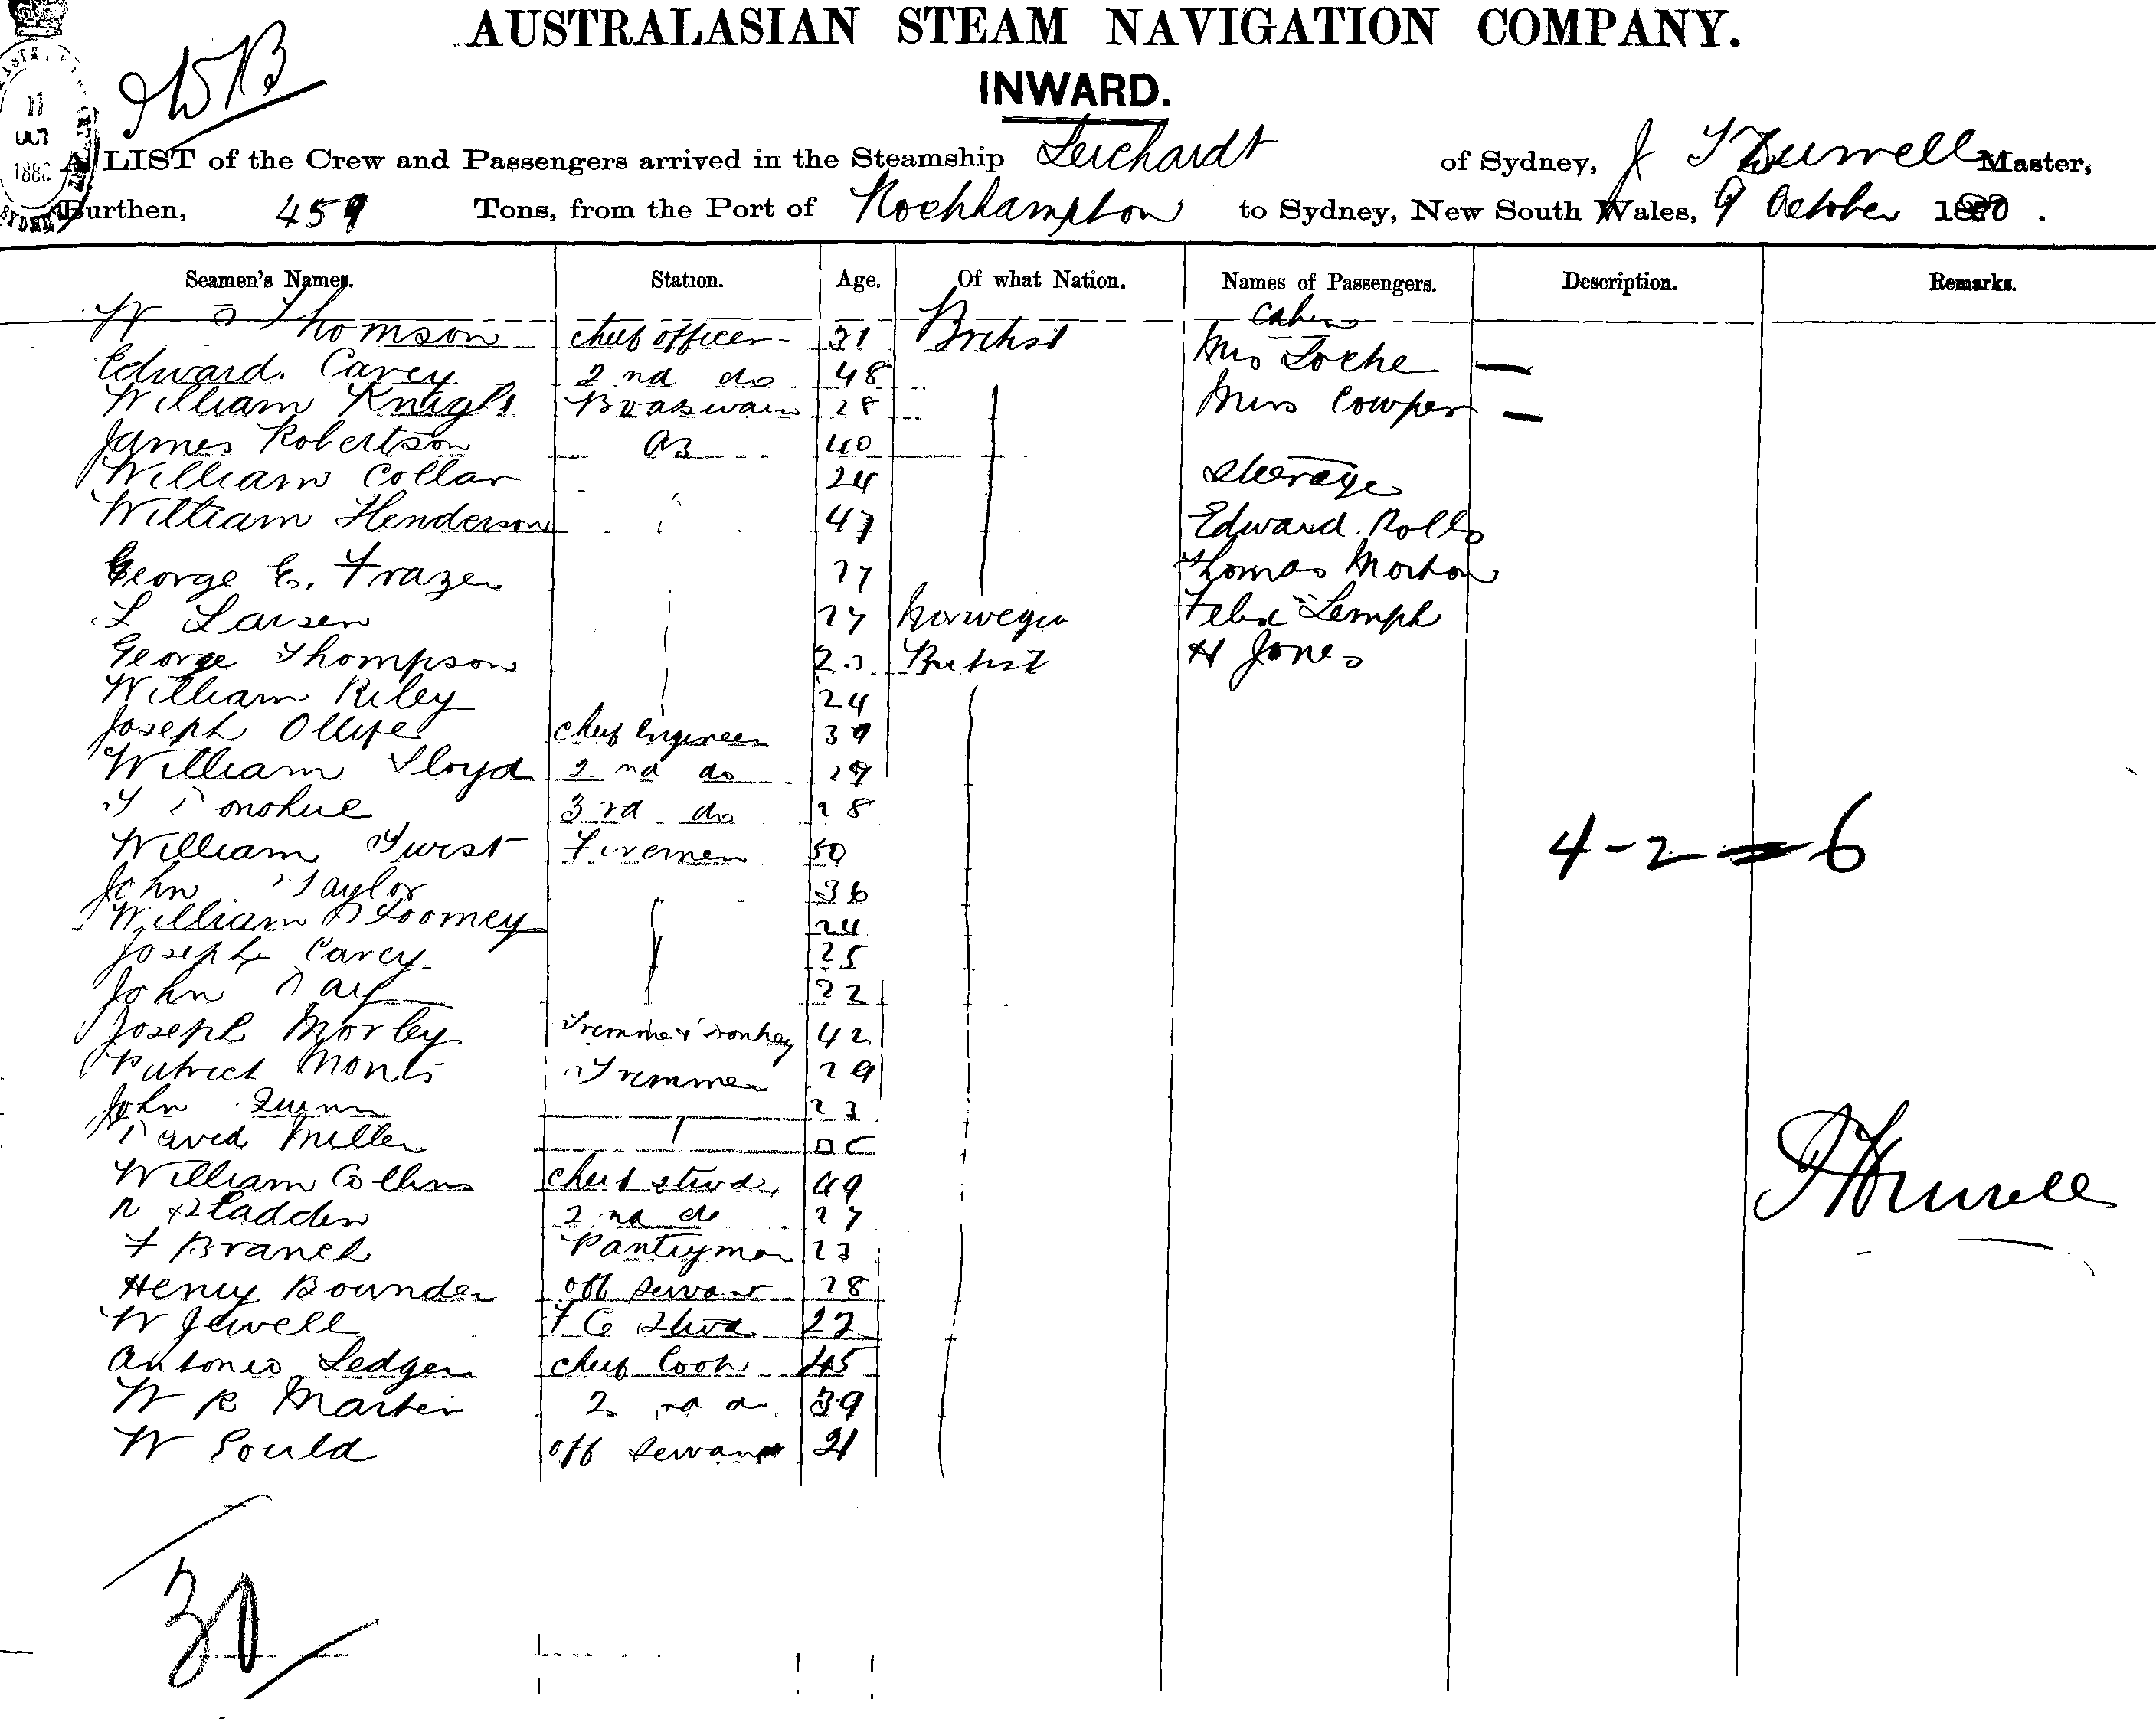 AUSTRALASIAN STEAM NAVIGATION COMPANY.
INWARD.
11
OCT
A LIST of the Crew and Passengers arrived in the Steamship Leichardt of Sydney, Master,
Burthen, 459 Tons, from the Port of Rockhampton to Sydney, New South Wales, 9 October 1880.
Seamen's Names. Station. Age. Of what Nation. Names of Passengers. Description. Remarks.
Thomson chief officer 31 British Cabin
Edward Carey 2nd do 48 Mrs Locke —
William Knight Boatswain 28 Miss Cowper —
James Robertson AB 40
William Collar 24 Steerage
William Henderson 47 Edward Rolls
George E. Frazer 27 Thomas Morton
L Larsen 27 Norwegia Felix Lemph
George Thompson British H Jones
William Riley 24
Joseph Olliffe chief Engineer 39
William Lloyd 2nd do 29
T Donohue 3rd do 28
William Firemen 50 4-2=6
John Taylor 36
William Toomey 24
Joseph Carey 25
John Day 22
Joseph Morley Trimmer & Donkey 42
Patrick Trimmer 29
John Quinn 23
David Miller
William Collins chief stwd 49
Gladden 2nd do 27
F Branch Pantryman 23
Henry Bounder off Servant 28
W Jewell F C Stwd 22
Antonio Ledger chief Cook 45
W R Martin 2nd do 39
W Gould off Servant 21
30